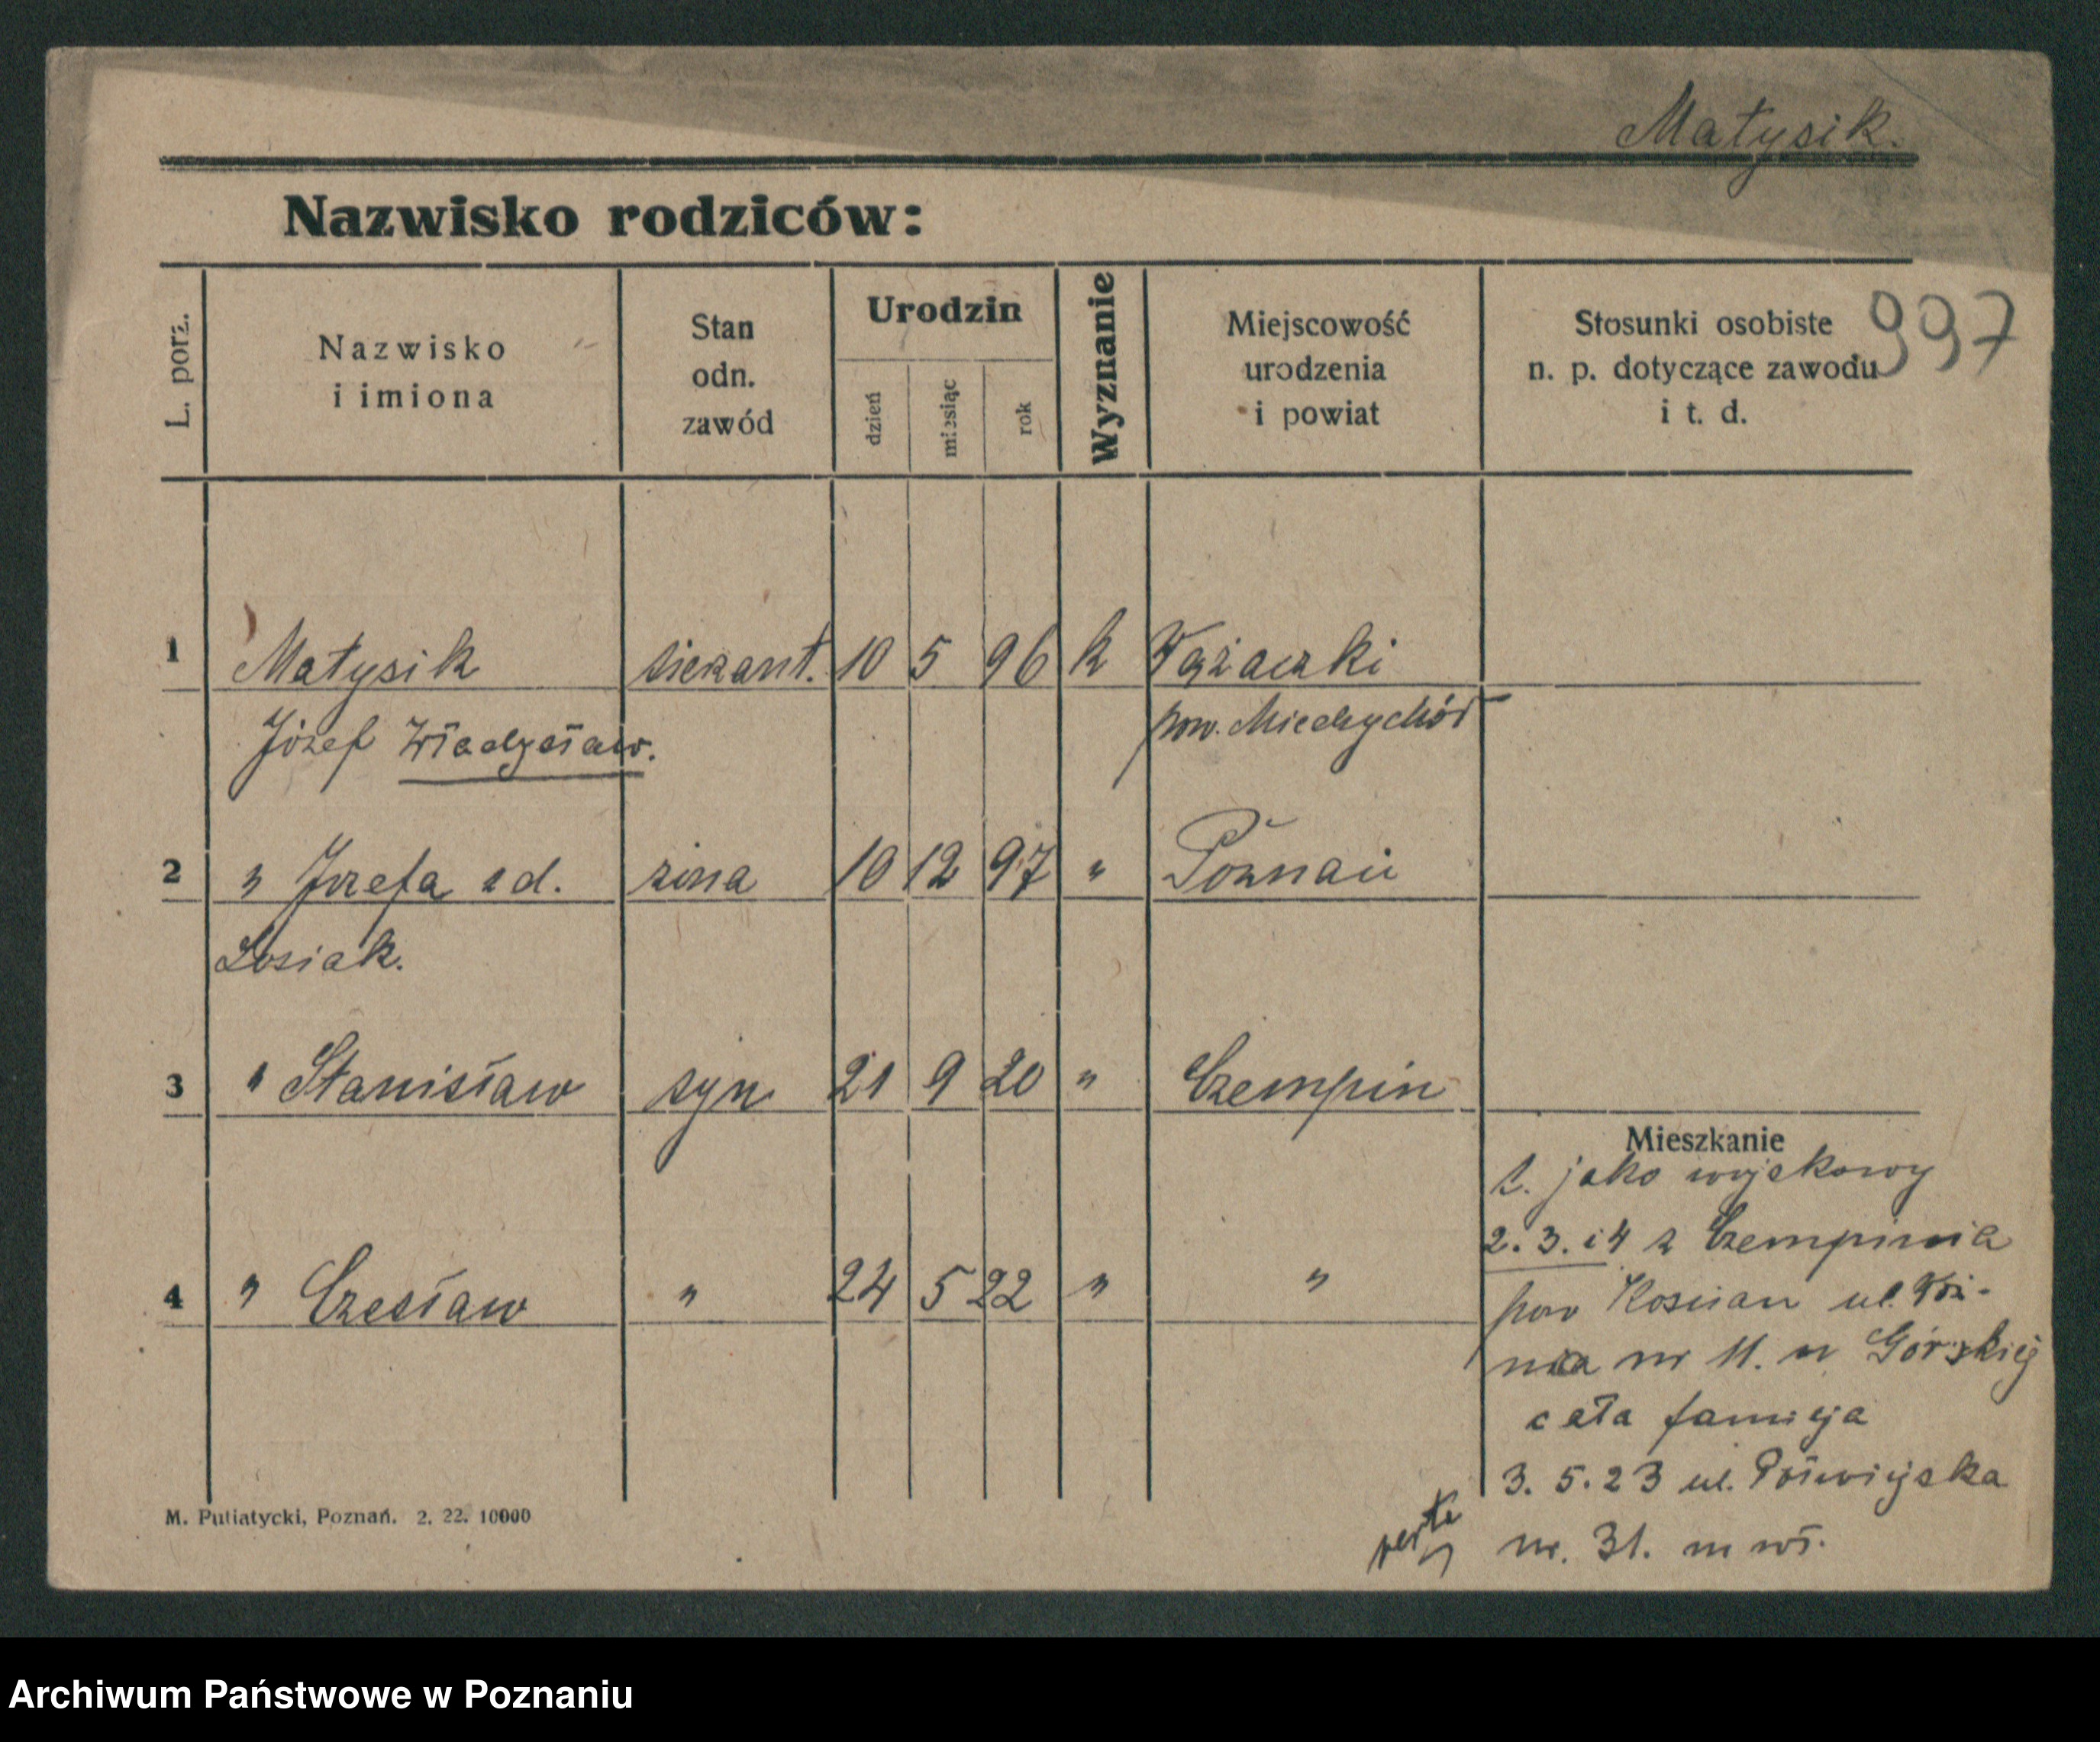 Matysik.
Nazwisko rodziców:
L. porz.
Nazwisko
i imiona
Stan
odn.
zawód
Urodzin
dzień
miesiąc
rok
Wyznanie
Miejscowość
urodzenia
i powiat
Stosunki osobiste
n. p. dotyczące zawodu
i t. d.
997
1 Matysik sierżant. 10 5 96 k
Józef Władysław. pow. Miedzychód
2 " Józefa zd. żona 10 12 97 " Poznań
Łosiak.
3 " Stanisław syn 21 9 20 " Czempin
Mieszkanie
1. jako wojskowy
2. 3. i 4 z Czempinia
4 " Czesław " 24 5 22 " "
pow Kościan ul.
nr 11. u Górskiej
cała familja
3. 5. 23 ul.
nr. 31. m wł.
M. Putiatycki, Poznań. 2. 22. 10000
Archiwum Państwowe w Poznaniu